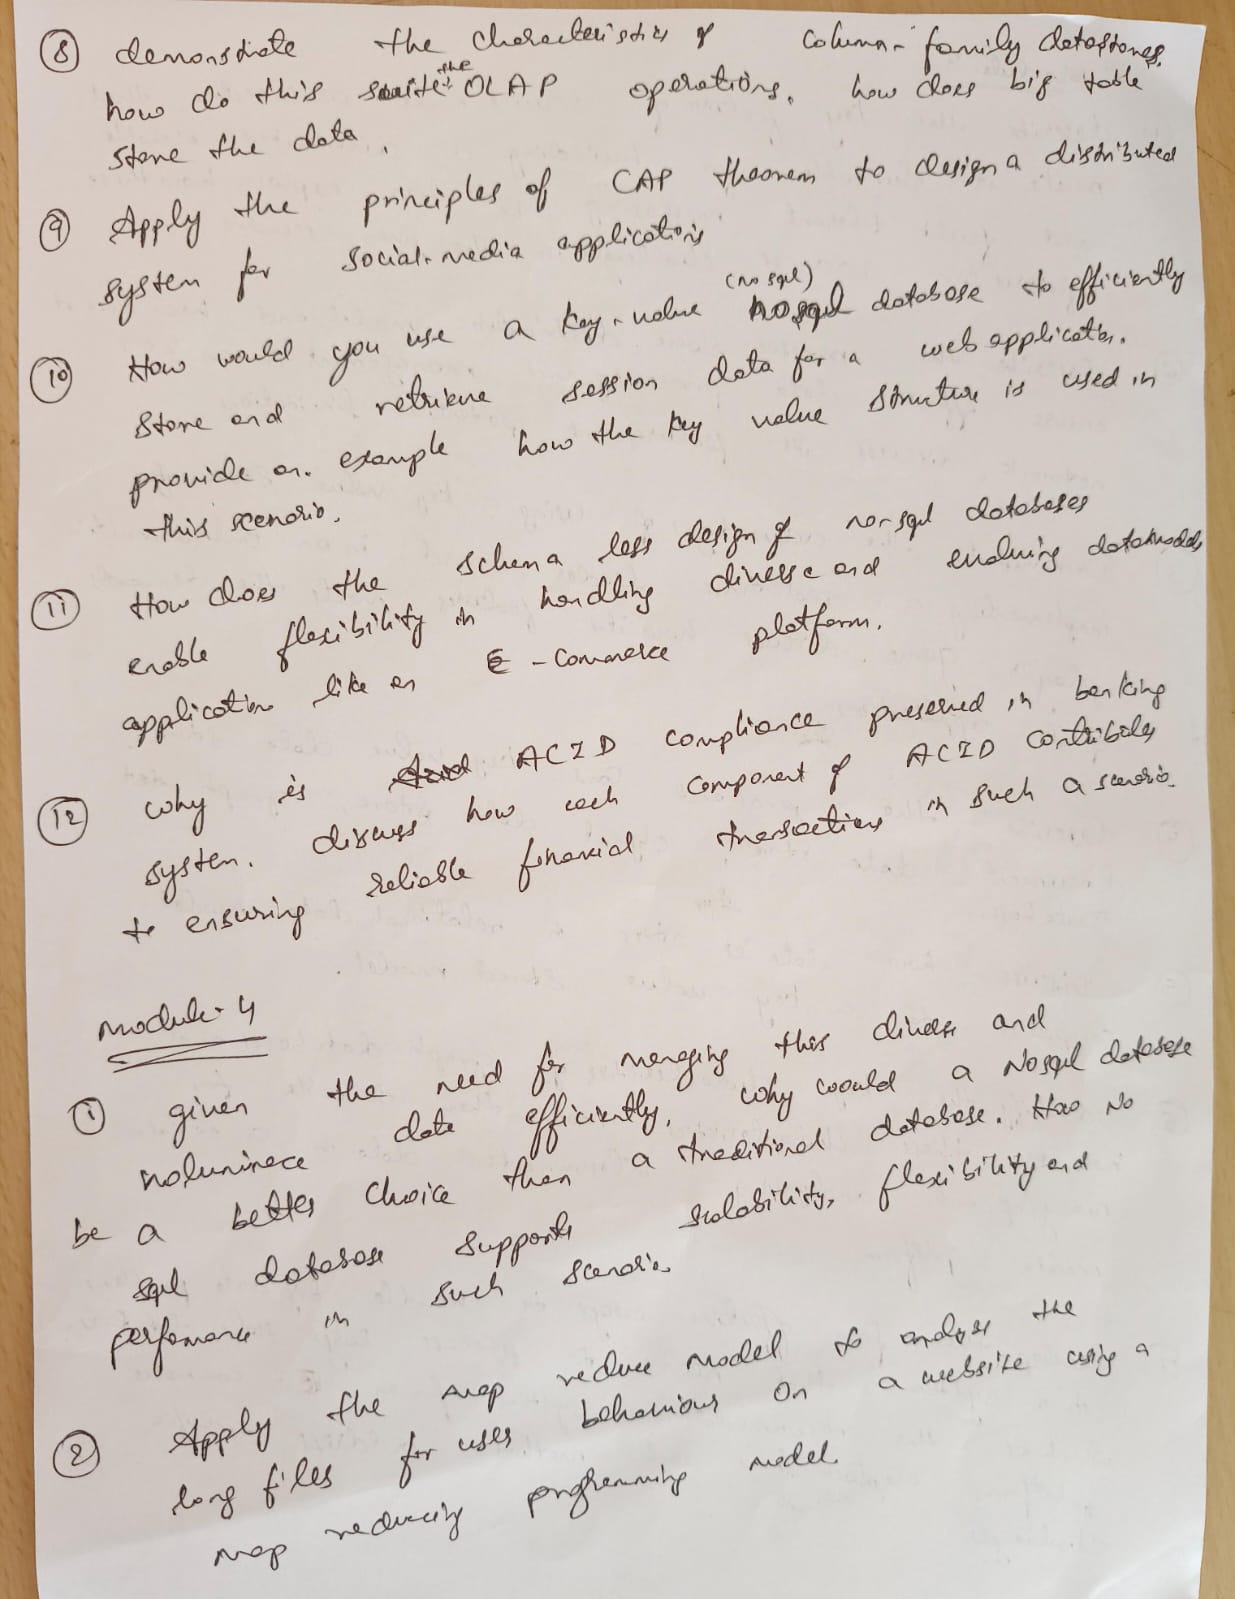 ⑧ demonstrate the characteristics of column-family datastores.
how do this suite the OLAP operations. how does big table
store the data.
⑨ Apply the principles of CAP theorem to design a distributed
system for social-media applications
⑩ How would you use a key-value (no sql) nosql database to efficiently
store and retrieve session data for a web application.
provide an example how the key value structure is used in
this scenario.
⑪ How does the schema less design of no-sql databases
enable flexibility in handling diverse and evolving datamodels
application like an E-commerce platform.
⑫ why is ACID compliance preserved in banking
system. discuss how each component of ACID contributes
to ensuring reliable financial transactions in such a scenario.
Module-4
① given the need for managing this diverse and
data efficiently, why would a Nosql database
be a better choice than a traditional database. How No
sql database supports scalability, flexibility and
performance in such scenario.
② Apply the map reduce model to analyse the
long files for uses behaviour on a website using a
map reducing programming model.